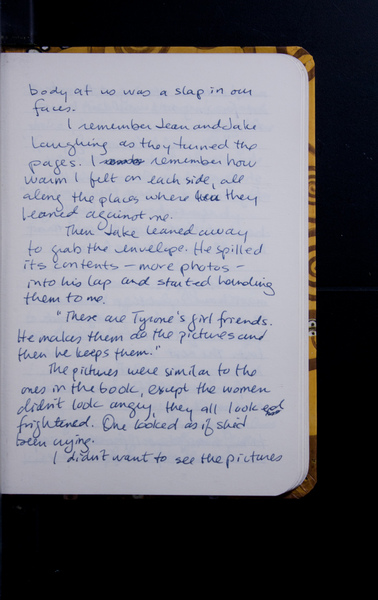 body at us was a slap in our
faces.
I remember Jean and Jake
laughing as they turned the
pages. I remember how
warm I felt on each side, all
along the places where they
leaned against me.
Then Jake leaned away
to grab the envelope. He spilled
its contents — more photos —
into his lap and started handing
them to me.
"These are Tyrone's girl friends.
He makes them do the pictures and
then he keeps them."
The pictures were similar to the
ones in the book, except the women
didn't look angry, they all looked
frightened. One looked as if she'd
been crying.
I didn't want to see the pictures